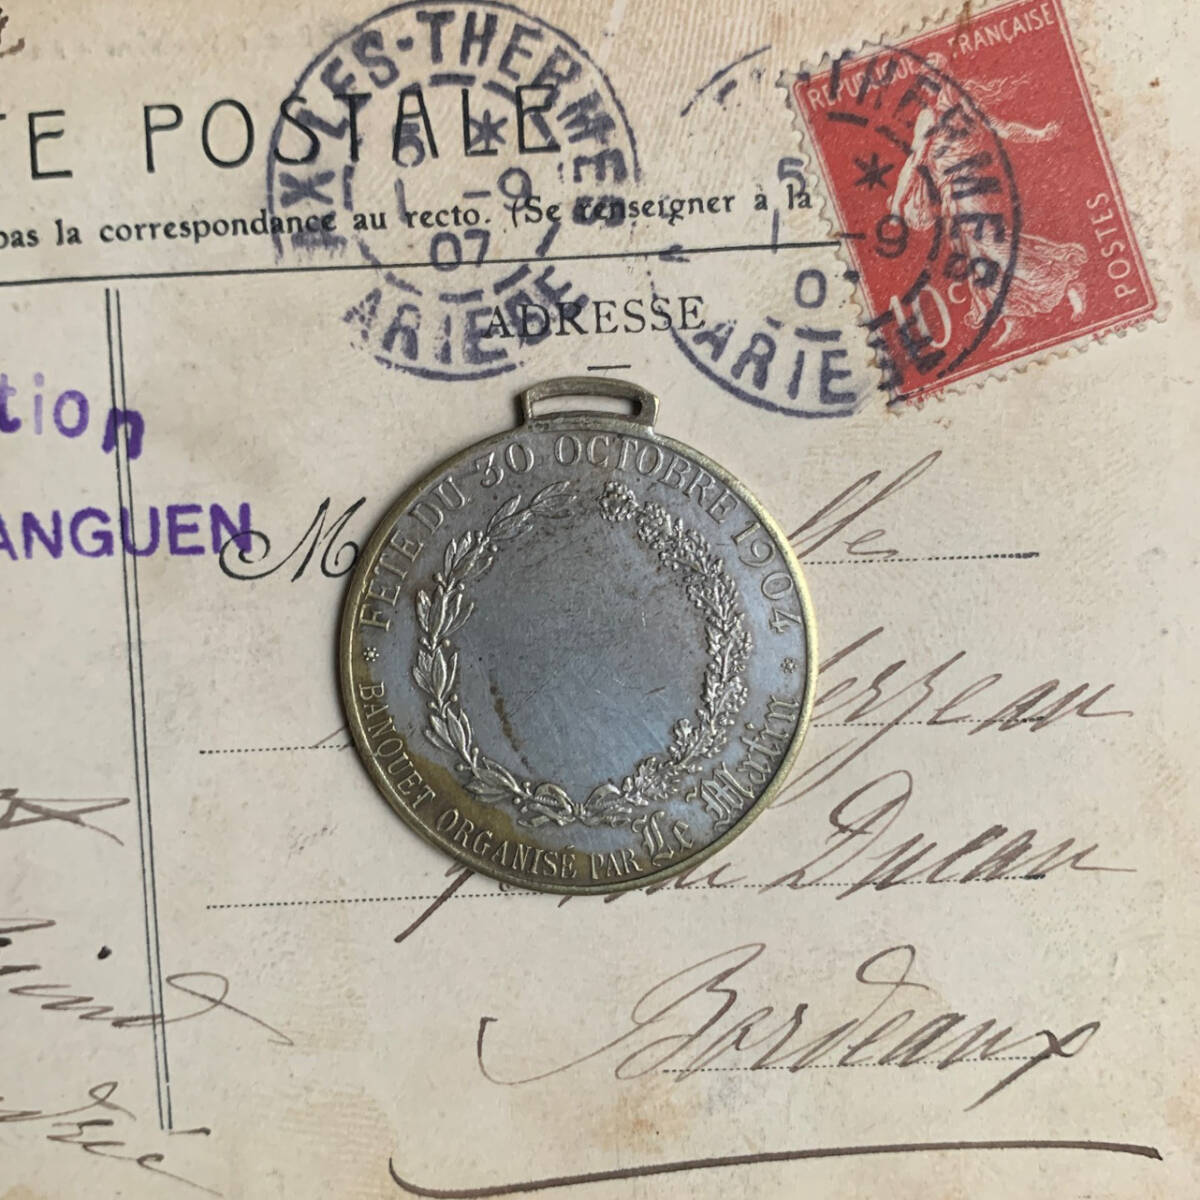 TE POSTALE
AX-LES-THERMES
5 *
1 -9
07
ARIEGE
THERMES
5 *
1 -9
0
ARIEGE
REPUBLIQUE FRANÇAISE
POSTES
10c
pas la correspondance au recto. (Se renseigner à la
ADRESSE
tion
ANGUEN
M lle
FÊTE DU 30 OCTOBRE 1904
* BANQUET ORGANISÉ PAR Le Matin *
Ducau
Bordeaux